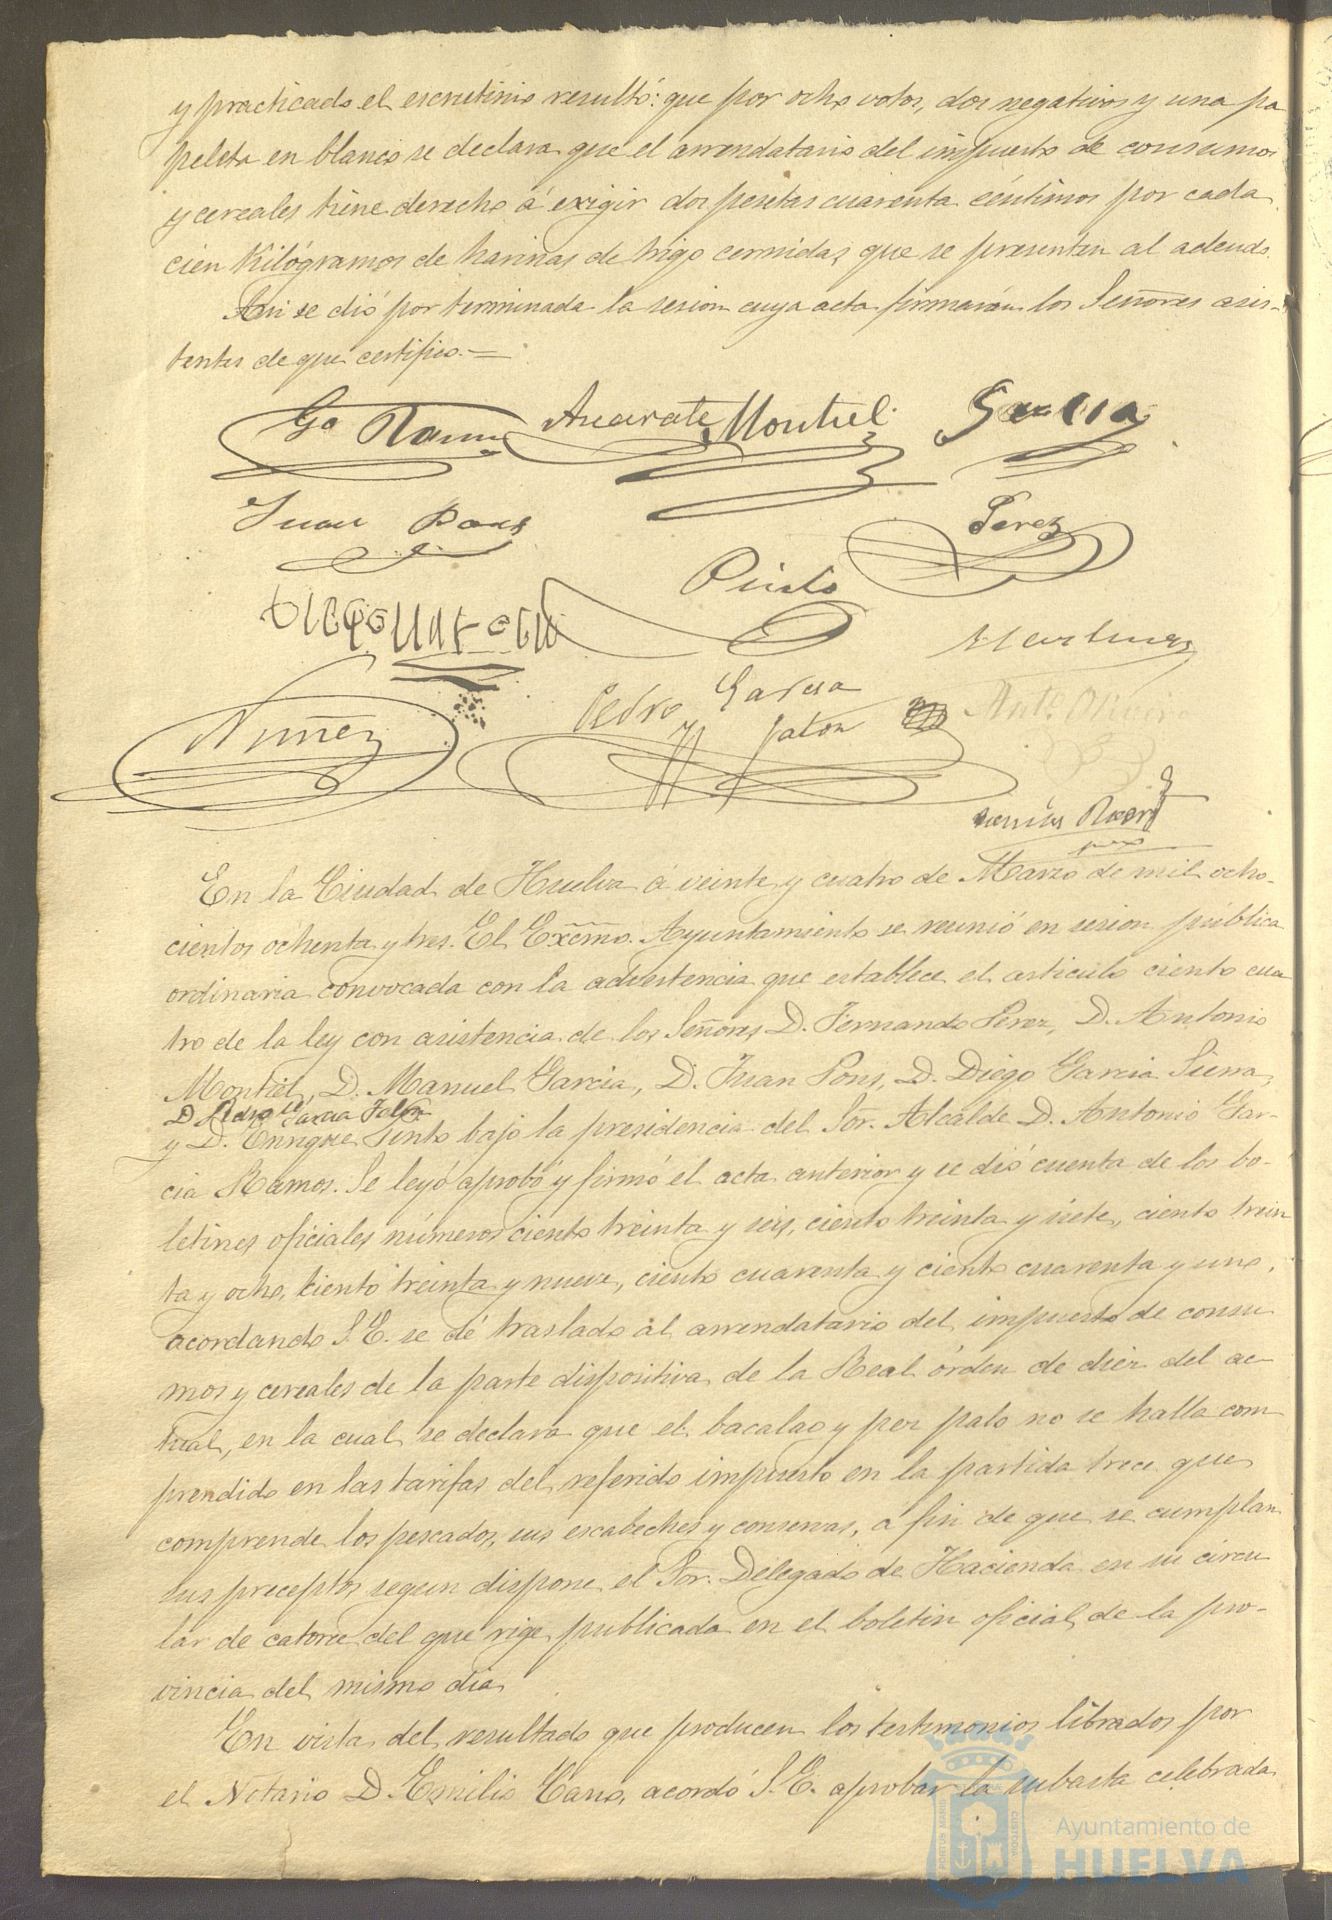 y practicado el escrutinio resultó: que por ocho votos, dos negativos y una pa
peleta en blanco se declara que el arrendatario del impuesto de consumos
y cereales tiene derecho á exigir dos pesetas cuarenta céntimos por cada
cien Kilógramos de harinas de trigo cernidas, que se presenten al adeudo.
Asi se dió por terminada la sesion cuya acta firmarán los Señores asis-
tentes de que certifico.=
Ga Ramos Azcarate Montiel Garcia
Juan Pons
Perez
Pinto
Martinez
Nuñez
Pedro Garcia
Jalon
Antº Oliver
En la Ciudad de Huelva á veinte y cuatro de Marzo de mil ocho-
cientos ochenta y tres. El Excmo. Ayuntamiento se reunió en sesion pública
ordinaria convocada con la advertencia que establece el articulo ciento cua
tro de la ley con asistencia de los Señores D. Fernando Perez, D. Antonio
Montiel, D. Manuel Garcia, D. Juan Pons, D. Diego Garcia Sierra,
D. Pedro Garcia Jalon
y D. Enrique Pinto bajo la presidencia del Sor. Alcalde D. Antonio Gar-
cia Ramos. Se leyó aprobó y firmó el acta anterior y se dió cuenta de los bo-
letines oficiales números ciento treinta y seis, ciento treinta y siete, ciento trein
ta y ocho, ciento treinta y nueve, ciento cuarenta y ciento cuarenta y uno,
acordando S. E. se dé traslado al arrendatario del impuesto de consu
mos y cereales de la parte dispositiva de la Real órden de diez del ac
tual, en la cual se declara que el bacalao y pez palo no se halla com
prendido en las tarifas del referido impuesto en la partida trece que
comprende los pescados, sus escabeches y conservas, á fin de que se cumplan
sus preceptos segun dispone el Sor. Delegado de Hacienda en su circu
lar de catorce del que rige publicada en el boletin oficial de la pro-
vincia del mismo dia
En vista del resultado que producen los testimonios librados por
el Notario D. Emilio Cano, acordó S. E. aprobar la subasta celebrada
Ayuntamiento de
HUELVA